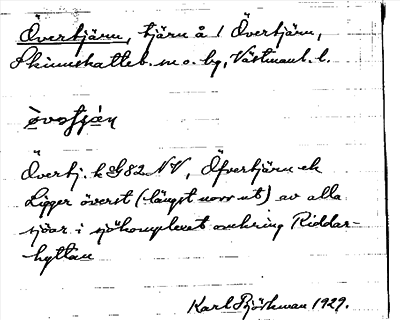 Övertjärn, tjärn å 1 Övertjärn,
Skinnskatteb. sn o. bg, Västmanl. l.
òvǝṣt̀já̀ṇ
Övertj. k G82 NV, Öfvertjärn ek
Ligger överst (längst norr ut) av alla
sjöar i sjökomplexet omkring Riddar-
hyttan
Karl Björkman 1929.